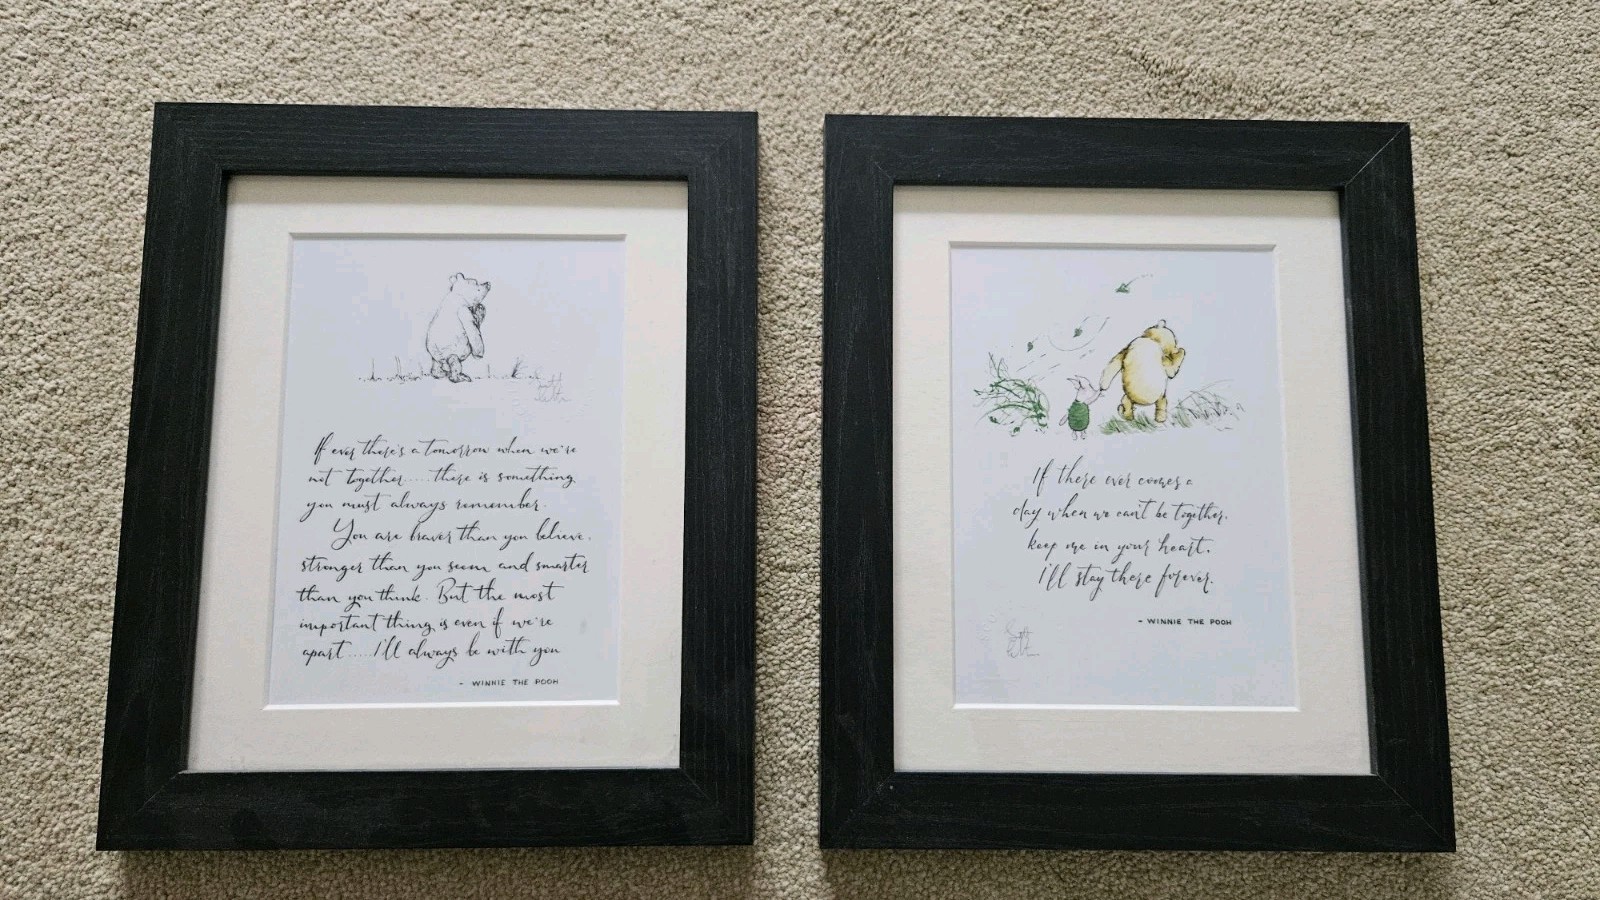 If ever there's a tomorrow when we're
not together.....there is something
you must always remember.
You are braver than you believe,
stronger than you seem and smarter
than you think. But the most
important thing is even if we're
apart.....I'll always be with you
- WINNIE THE POOH
If there ever comes a
day when we can't be together,
keep me in your heart.
I'll stay there forever.
- WINNIE THE POOH